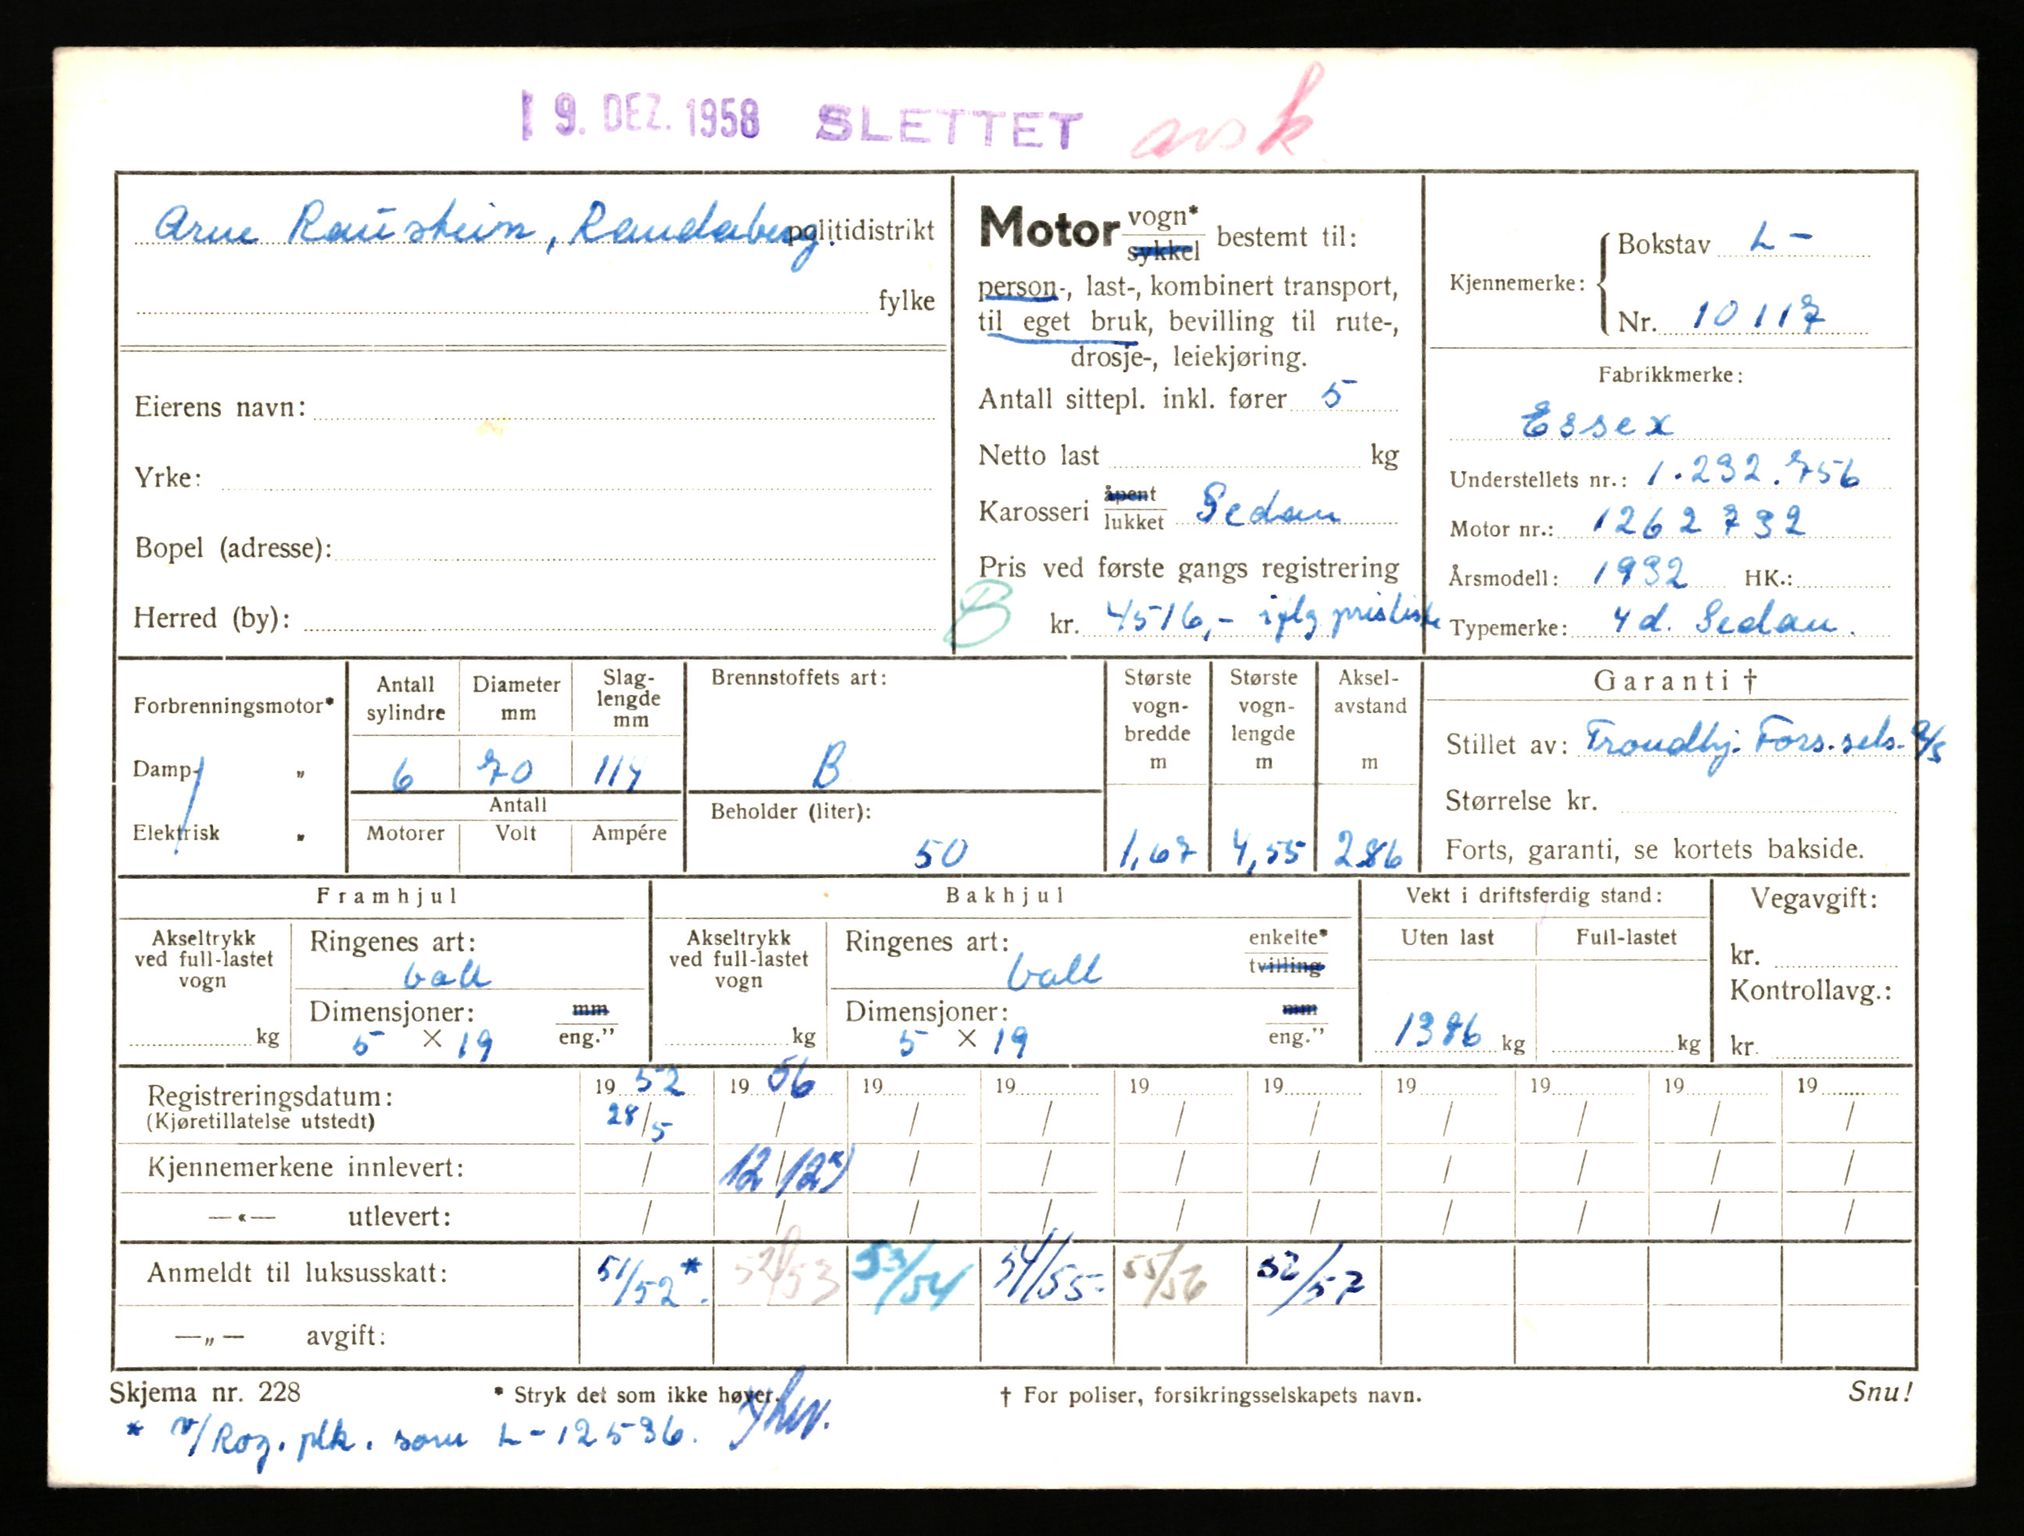 19. DEZ. 1958 SLETTET avsk
Arne Raustein, Randaberg. politidistrikt
fylke
Eierens navn:
Yrke:
Bopel (adresse):
Herred (by):
Motor vogn* sykkel bestemt til:
person-, last-, kombinert transport,
til eget bruk, bevilling til rute-,
drosje-, leiekjøring.
Antall sittepl. inkl. fører 5
Netto last kg
Karosseri åpent lukket Sedan
Pris ved første gangs registrering
B kr. 4516,- iflg prisliste
Kjennemerke: Bokstav L-
Nr. 10117
Fabrikkmerke:
Essex
Understellets nr.: 1.232.756
Motor nr.: 1262732
Årsmodell: 1932 HK.:
Typemerke: 4 d. Sedan.
Forbrenningsmotor*
Damp- „
Elektrisk „
Antall sylindre 6
Diameter mm 70
Slag-lengde mm 114
Antall
Motorer Volt Ampére
Brennstoffets art:
B
Beholder (liter):
50
Største vogn-bredde m 1,67
Største vogn-lengde m 4,55
Aksel-avstand m 286
Garanti †
Stillet av: Trondhj. Fors.sels. a/s
Størrelse kr.
Forts, garanti, se kortets bakside.
Framhjul
Akseltrykk ved full-lastet vogn kg
Ringenes art:
ball
Dimensjoner: mm
5 × 19 eng."
Bakhjul
Akseltrykk ved full-lastet vogn kg
Ringenes art: enkelte*
ball tvilling
Dimensjoner: mm
5 × 19 eng."
Vekt i driftsferdig stand:
Uten last Full-lastet
1386 kg kg
Vegavgift:
kr.
Kontrollavg.:
kr.
Registreringsdatum: 19 52 19 56 19 19 19 19 19 19 19 19
(Kjøretillatelse utstedt) 28/5 / / / / / / / / /
Kjennemerkene innlevert: / 12/12*) / / / / / / / /
—«— utlevert: / / / / / / / / / /
Anmeldt til luksusskatt: 51/52*. 52/53 53/54 54/55 55/56 52/57
—„— avgift:
Skjema nr. 228 * Stryk det som ikke høver. † For poliser, forsikringsselskapets navn. Snu!
* v/Rog. plk. som L-12536.